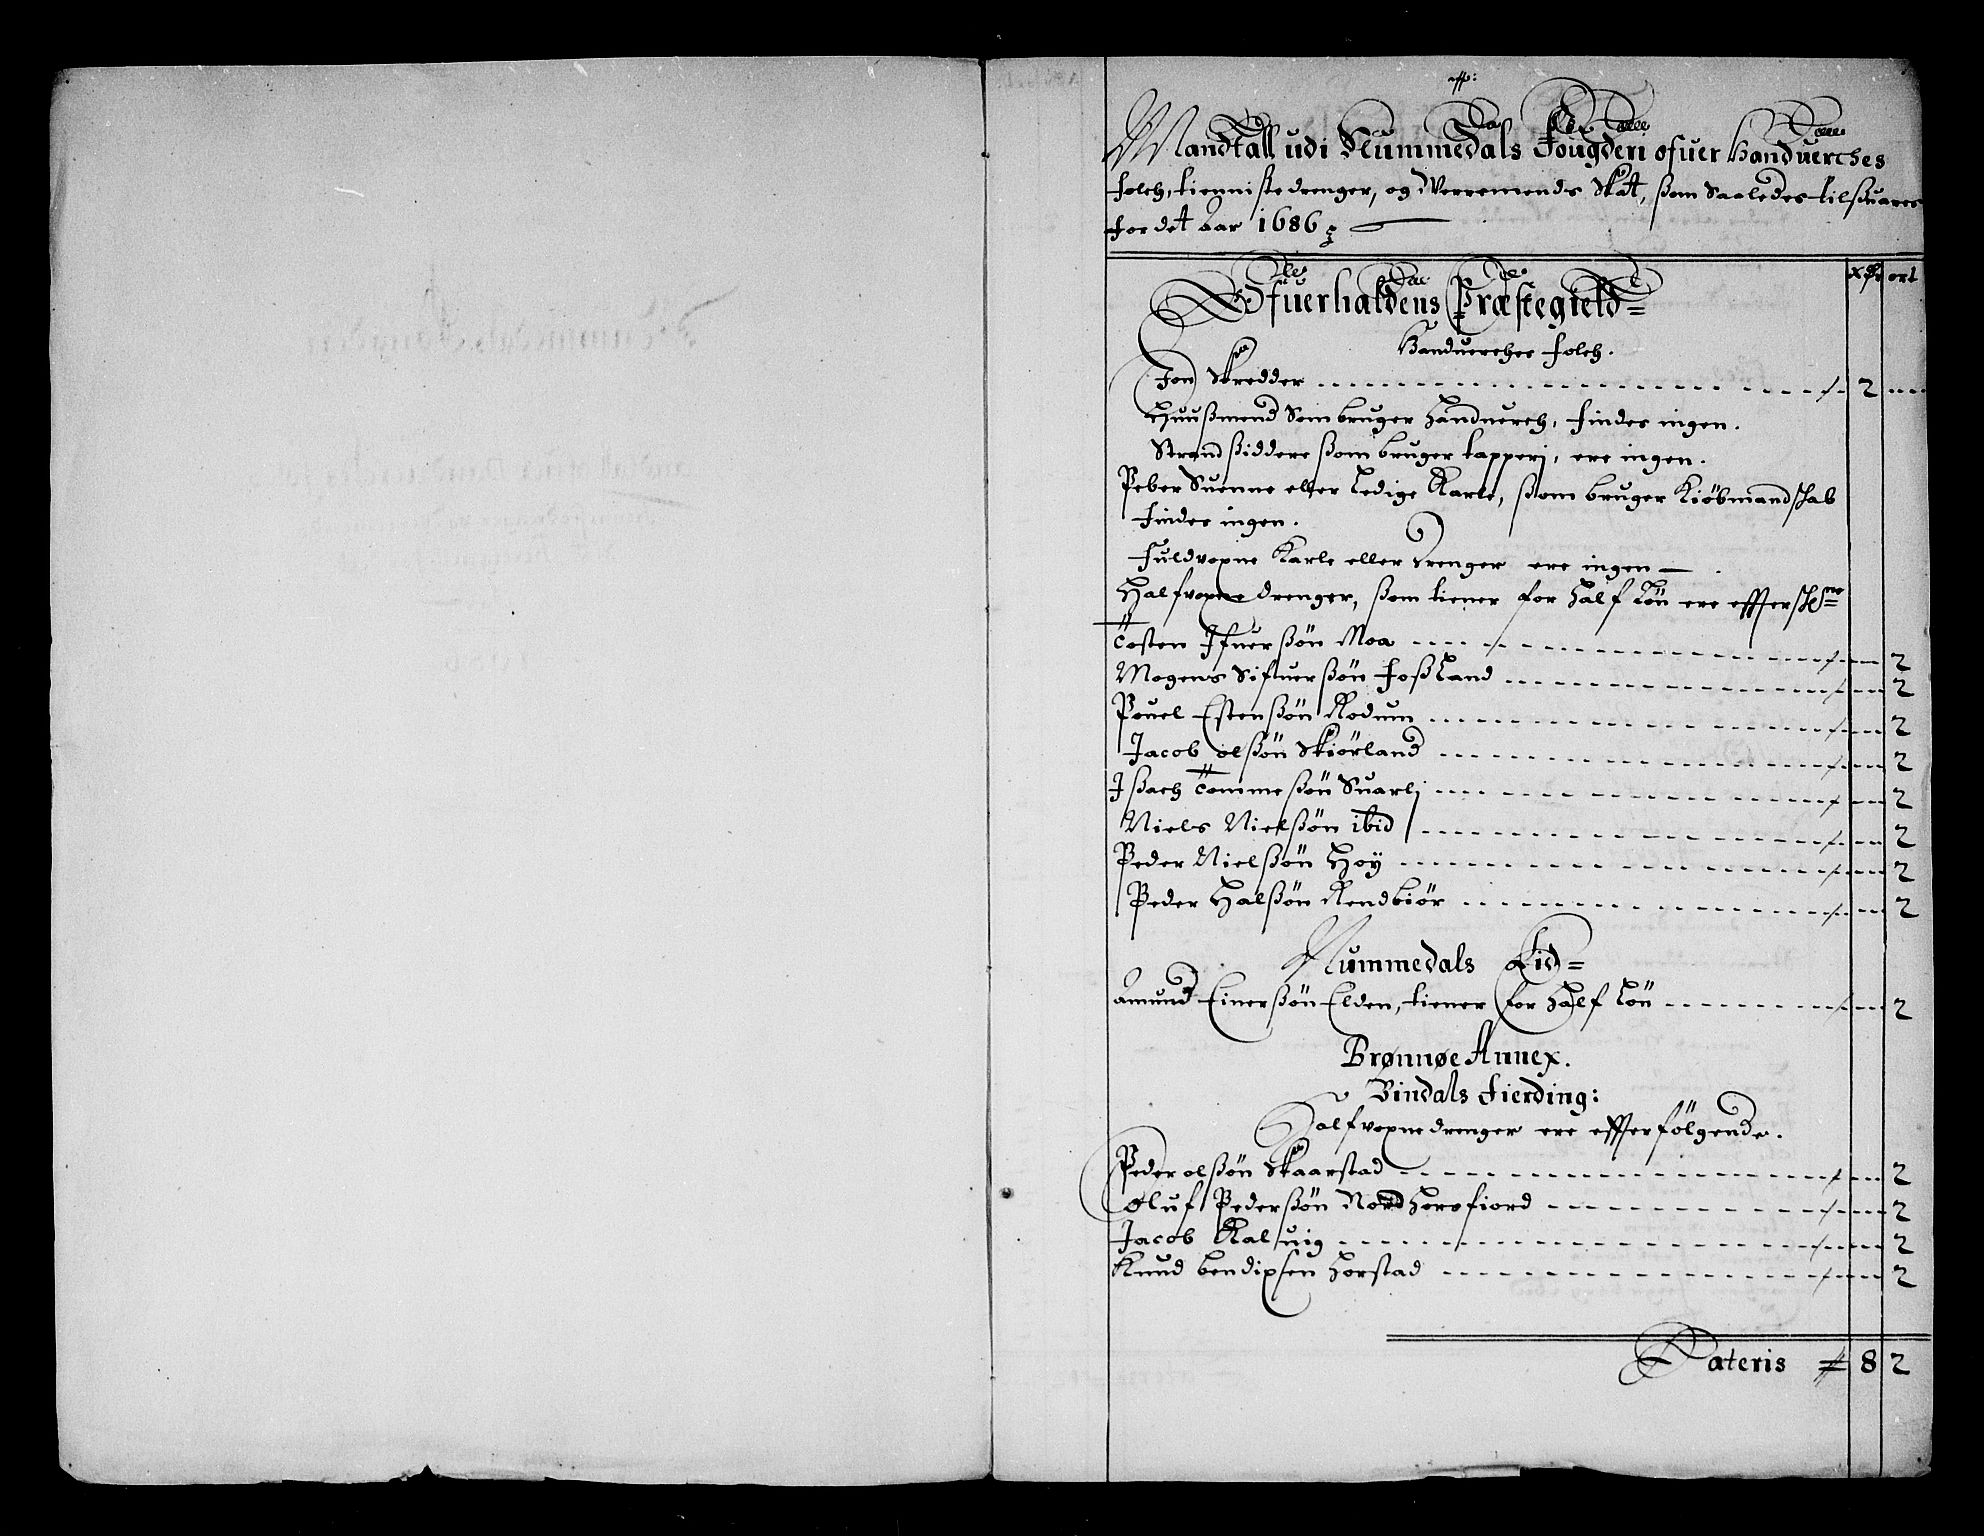 Mandtall udi Nummedals Fougderi ofuer Handuerches
folch, tienniste drenger, og Verremends Skat, som Saaledes tilsuares
for det Aar 1686
Ofuerhaldens Præstegield=
rdr ort
Handuercher folch.
Jon Skredder 2
Huusmend Som bruger Handuerch, findes ingen.
Strand siddere som bruger tapperj, ere ingen.
Peber Suenne eller Ledige Karle, som bruger Kiøbmandschab
findes ingen.
Fuldvoxne Karle eller Drenger ere ingen
Halfvoxne drenger, som tiener for half Løn ere effter
Tosten Ifuersøn Moa 2
Mogens Sifuersøn Fossland 2
Pouel Estensøn Rodum 2
Jacob olsøn Skiörland 2
Isach Tommesøn Suarlj 2
Niels Nielsøn ibid 2
Peder Nielsøn Hoy 2
Peder Halsøn Rendbiör 2
Nummedals Eid=
Amund Einersøn Elden, tiener for half Løn 2
Brønnøe Annex.
Bindals Fierding:
Halfvoxne drenger ere effterfölgende.
Peder olsøn Skaarstad 2
Oluf Pedersøn Nord horsfiord 2
Jacob Kaluig 2
Knud bendixsen horstad 2
Lateris 8 2